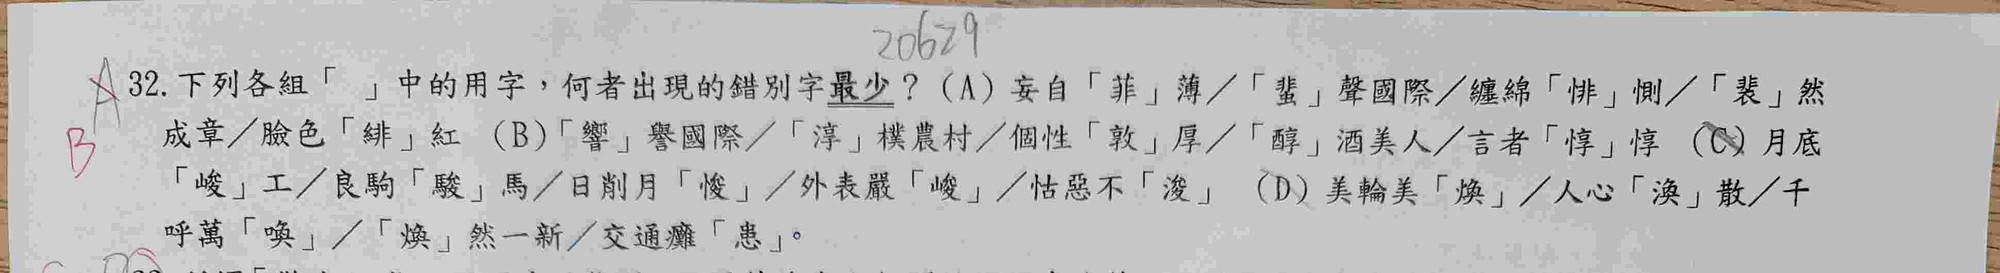 20629
A 32. 下列各組「　」中的用字，何者出現的錯別字最少？（A）妄自「菲」薄／「蜚」聲國際／纏綿「悱」惻／「裴」然
B 成章／臉色「緋」紅 （B）「響」譽國際／「淳」樸農村／個性「敦」厚／「醇」酒美人／言者「惇」惇 （C）月底
「峻」工／良駒「駿」馬／日削月「悛」／外表嚴「峻」／怙惡不「浚」 （D）美輪美「煥」／人心「渙」散／千
呼萬「喚」／「煥」然一新／交通癱「患」。